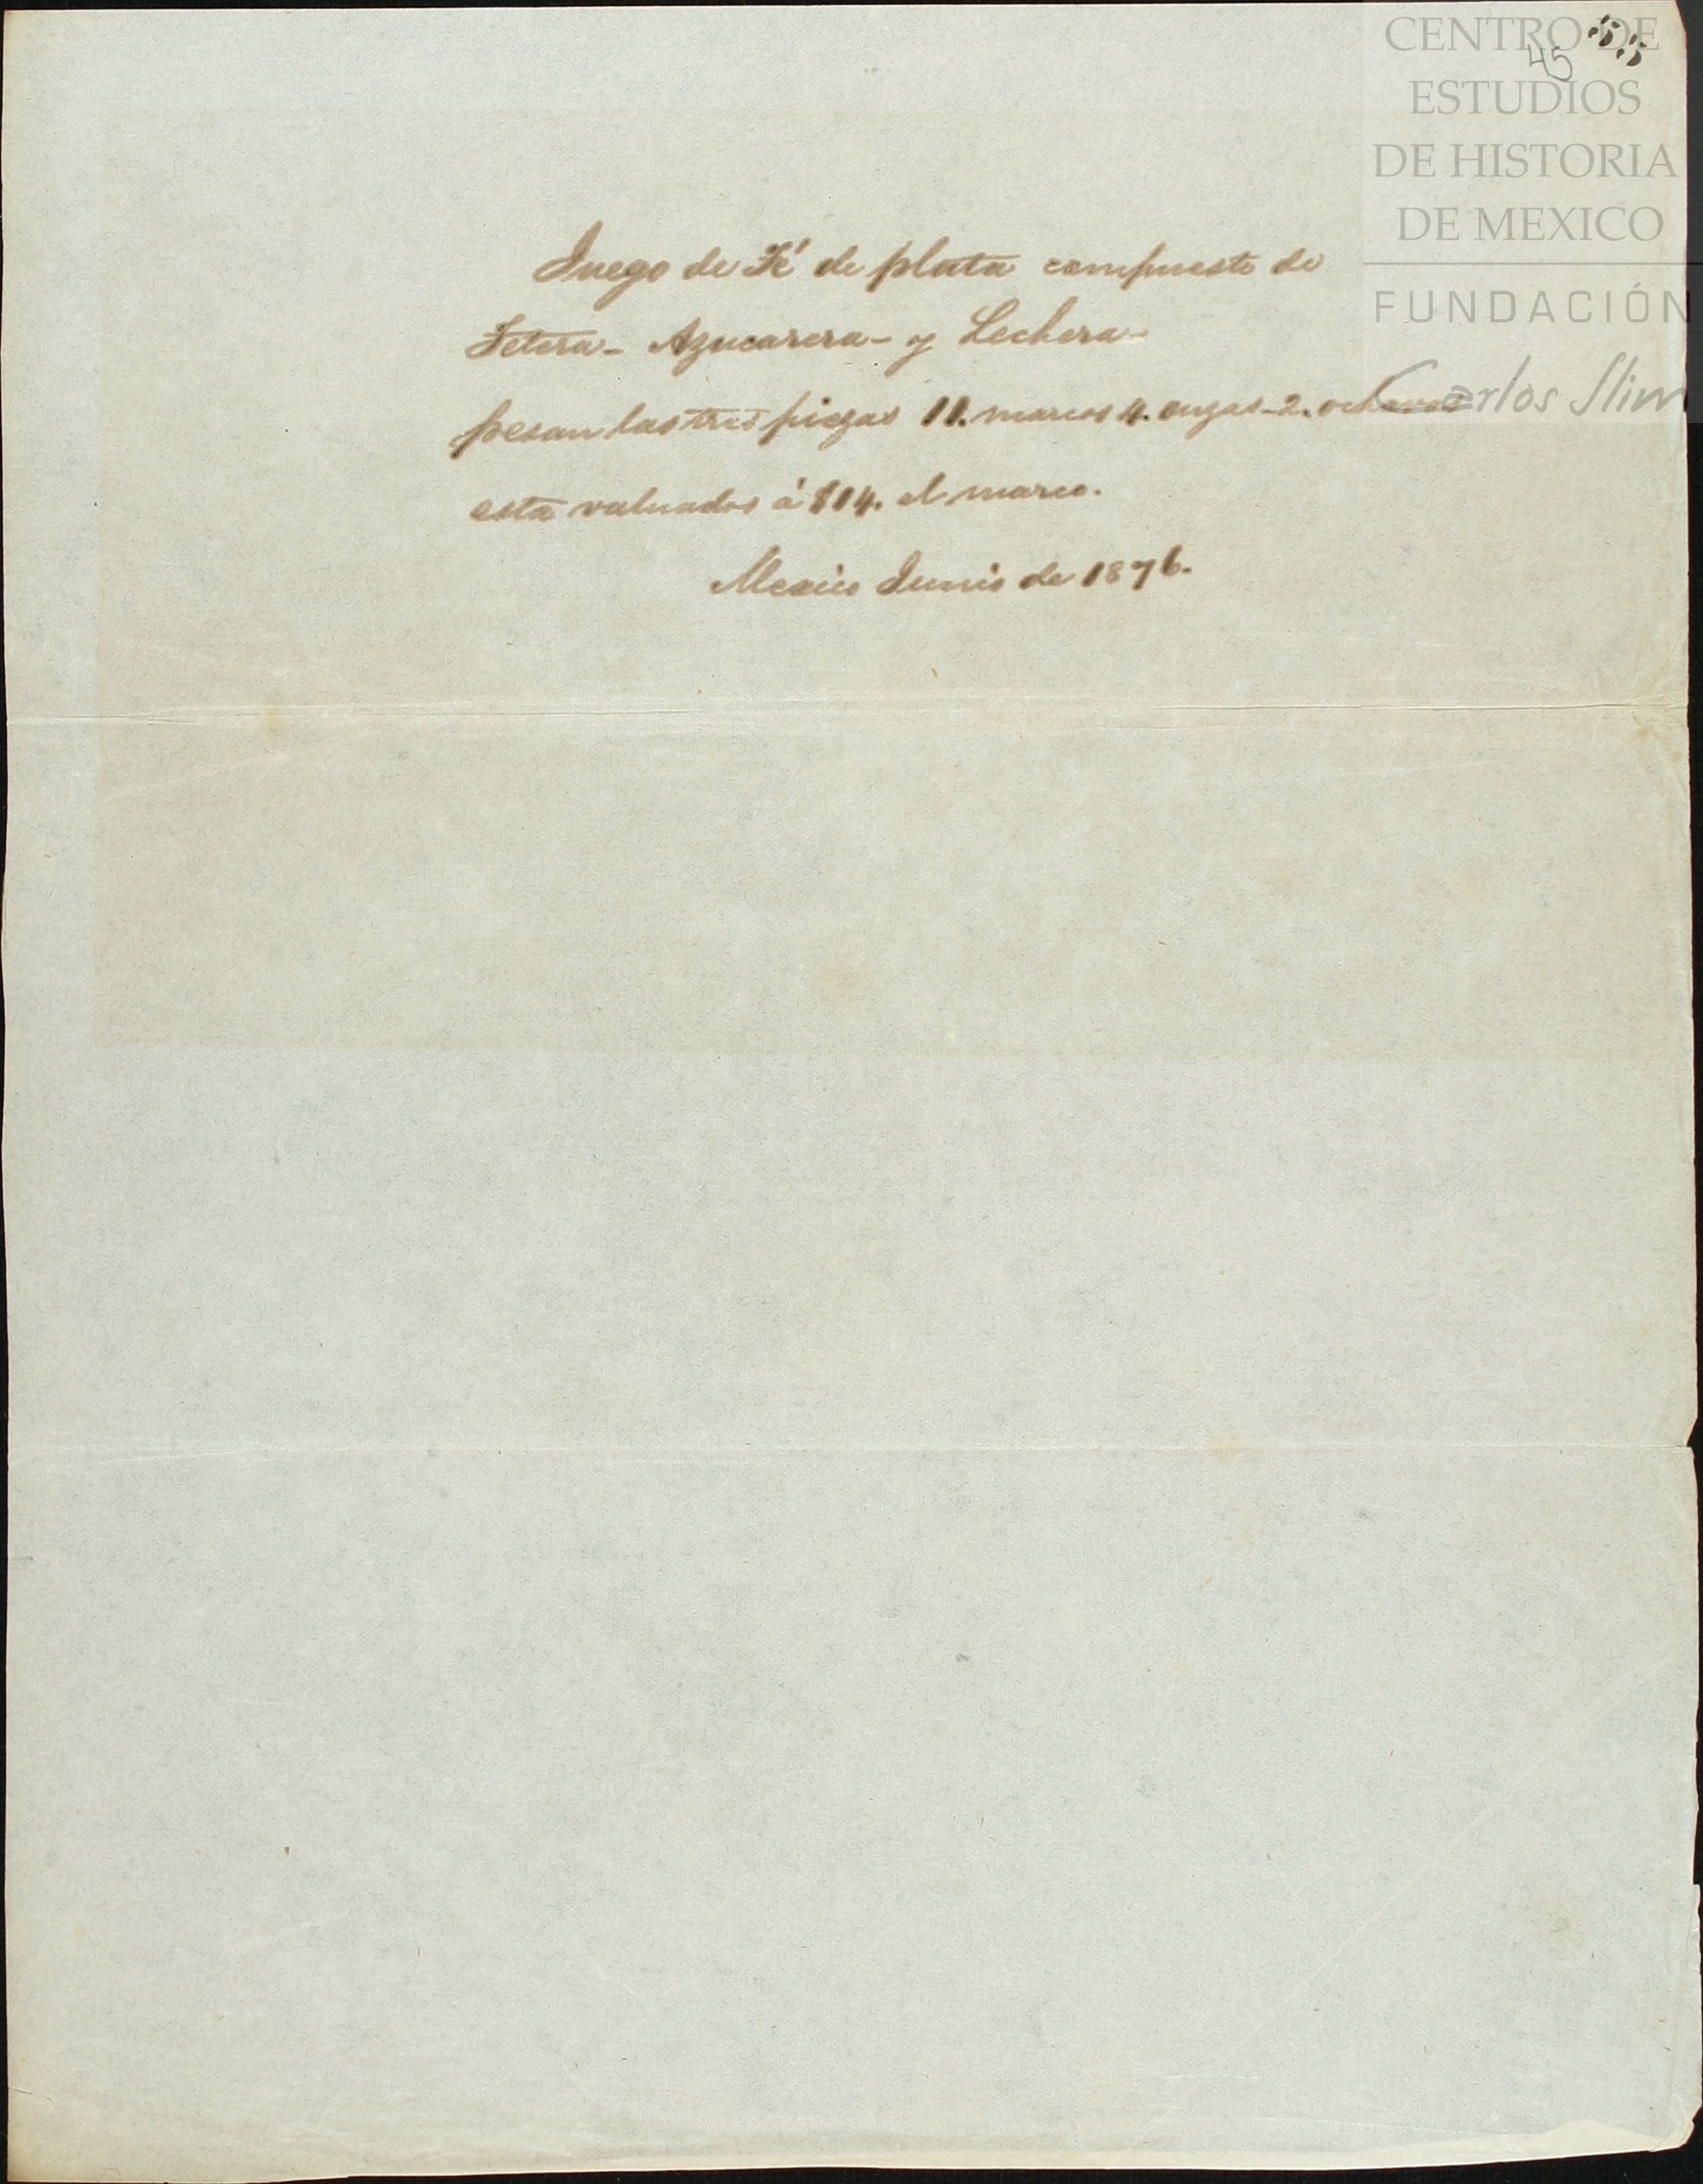 CENTRO DE
45
ESTUDIOS
DE HISTORIA
DE MEXICO
FUNDACIÓN
Carlos Slim
Juego de Té de plata compuesto de
Tetera - Azucarera - y Lechera -
pesan las tres piezas 11. marcos 4. onzas - 2. ochavas
está valuados á $14. el marco.
Mexico Junio de 1876.